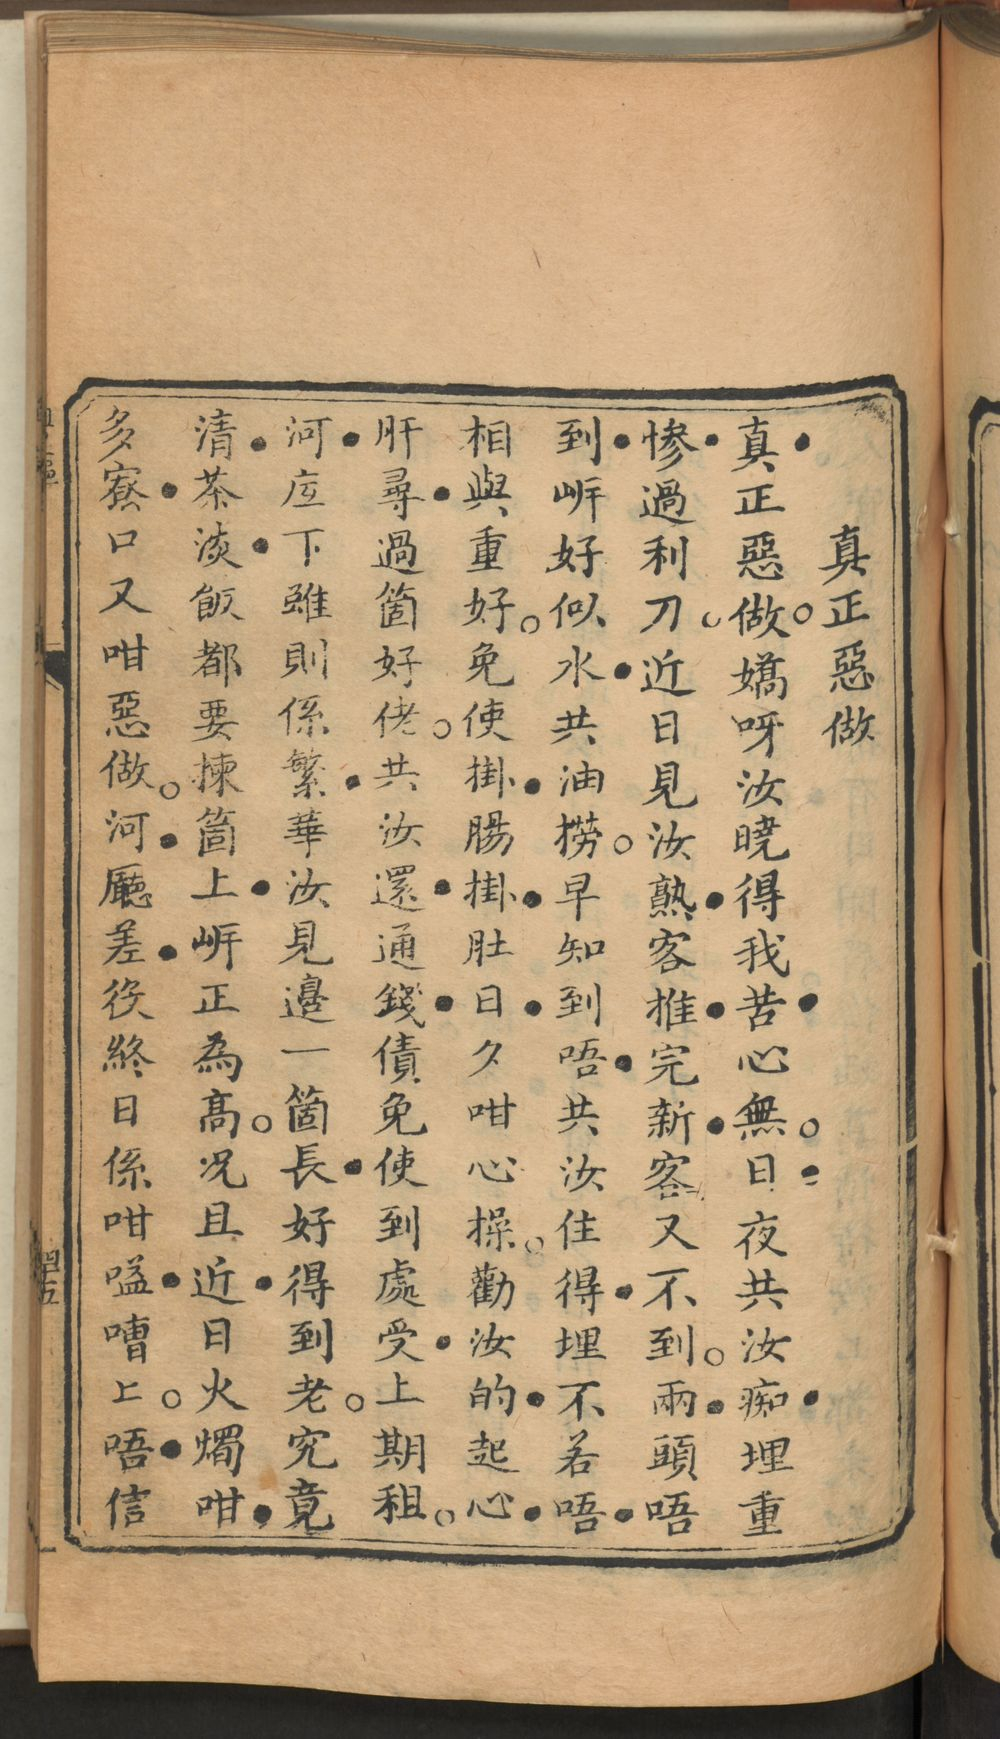 真正惡做
真正惡做嬌呀汝曉得我苦心無日夜共汝痴埋重
惨過利刀近日見汝熟客推完新客又不到兩頭唔
到岍好似水共油撈早知到唔共汝住得埋不若唔
相與重好免使掛腸掛肚日久咁心操勸汝的起心
肝尋過箇好佬共汝還通錢債免使到處受上期租
河底下雖則係繁華汝見邊一箇長好得到老究竟
清茶淡飯都要揀箇上岍正為高况且近日火燭咁
多寮口又咁惡做河廳差役終日係咁嗌嘈上唔信